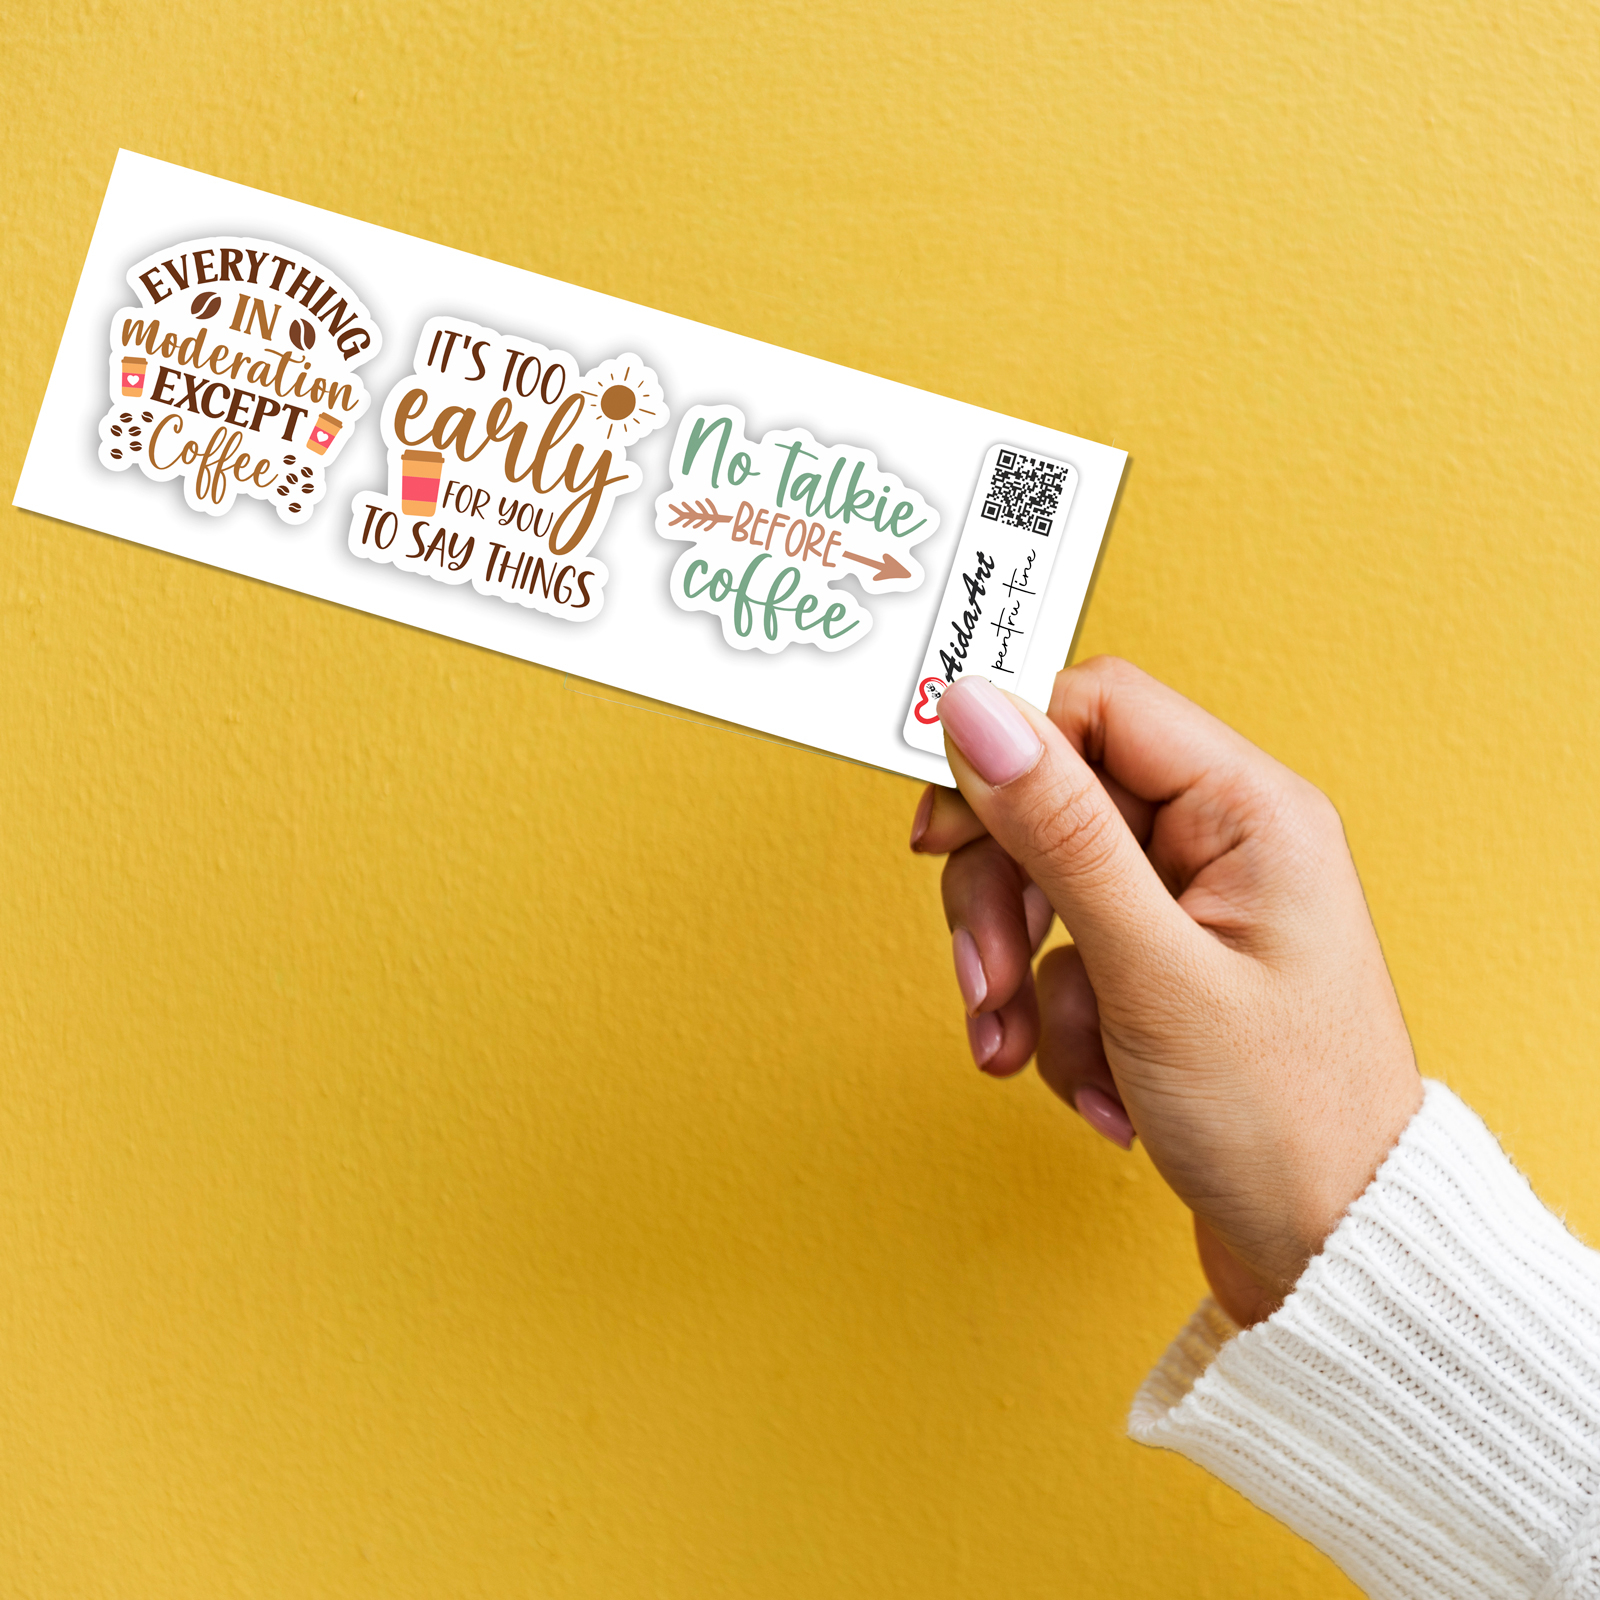 EVERYTHING
IN
moderation
EXCEPT
Coffee
IT'S TOO
early
FOR YOU
TO SAY THINGS
No Talkie
BEFORE
coffee
AidaArt
pentru tine